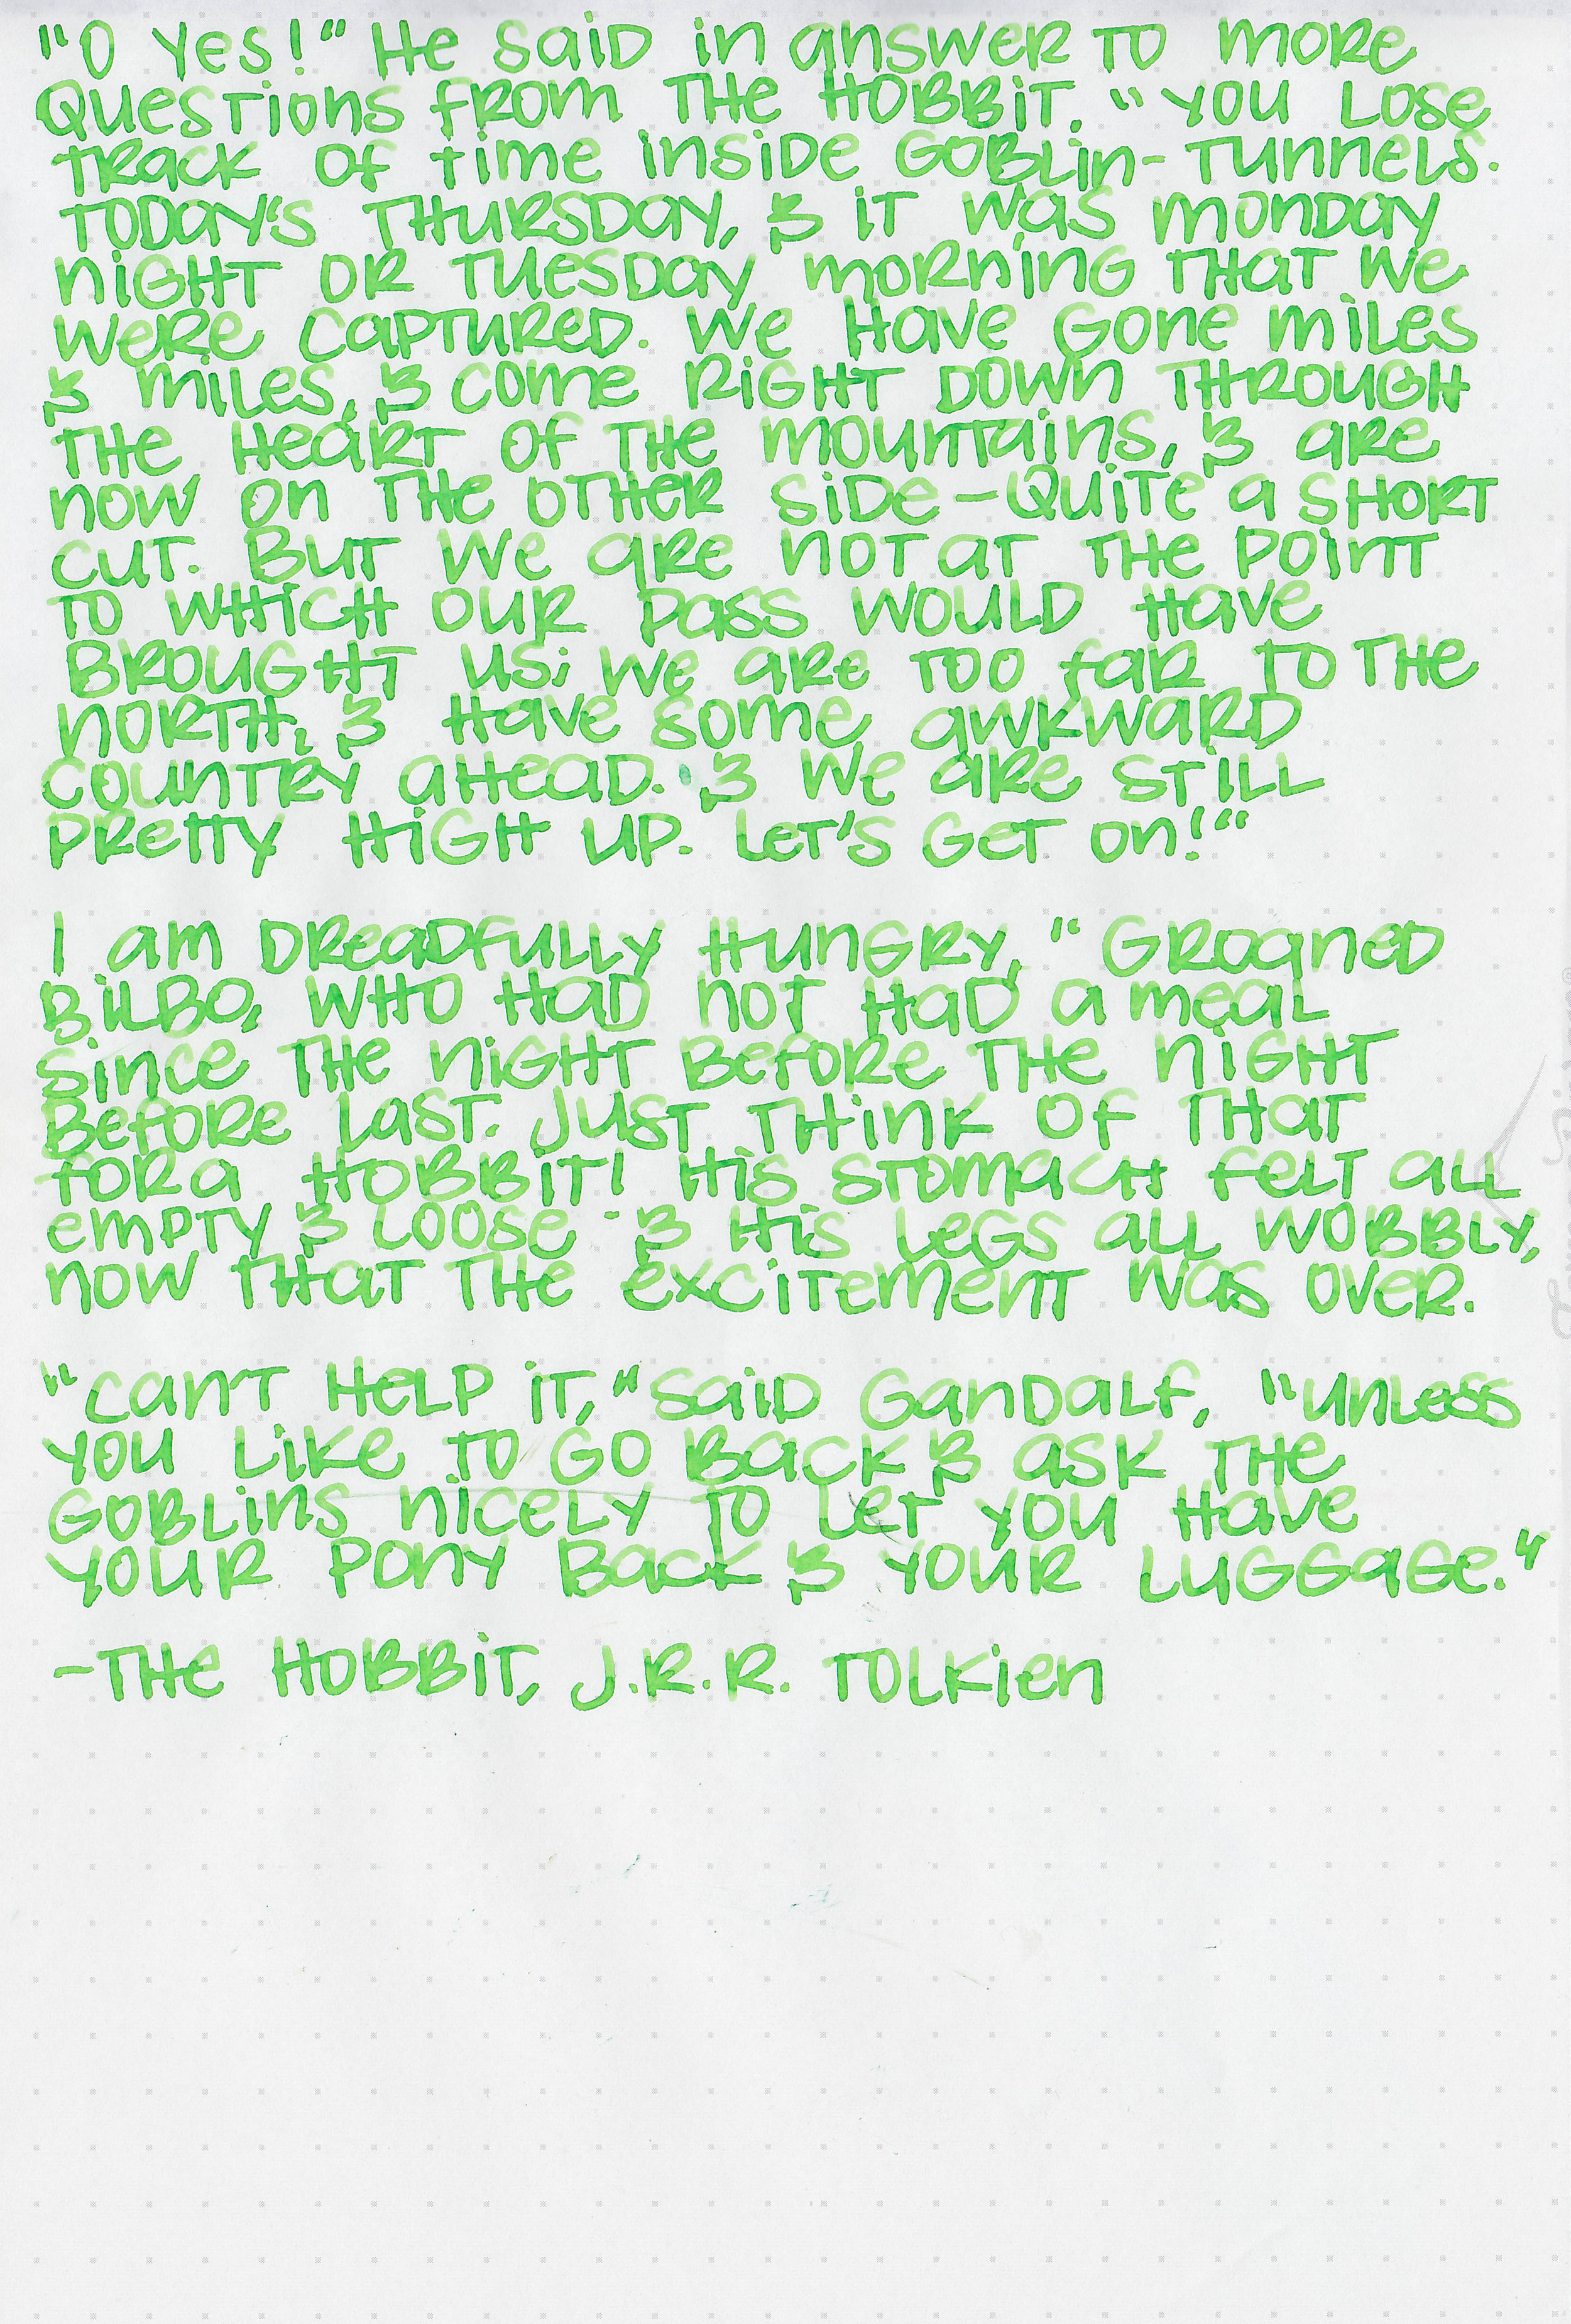 "O Yes!" He said in answer to more
questions from the Hobbit. "You lose
track of time inside goblin-tunnels.
Today's Thursday, & it was Monday
night or Tuesday morning that we
were captured. We have gone miles
& miles, & come right down through
the heart of the mountains, & are
now on the other side - quite a short
cut. But we are not at the point
to which our pass would have
brought us; we are too far to the
north, & have some awkward
country ahead. & we are still
pretty high up. Let's get on!"
I am dreadfully hungry," groaned
Bilbo, who had not had a meal
since the night before the night
before last. Just think of that
for a hobbit! His stomach felt all
empty & loose & his legs all wobbly,
now that the excitement was over.
"Can't help it," said Gandalf, "unless
you like to go back & ask the
goblins nicely to let you have
your pony back & your luggage."
-The Hobbit, J.R.R. Tolkien